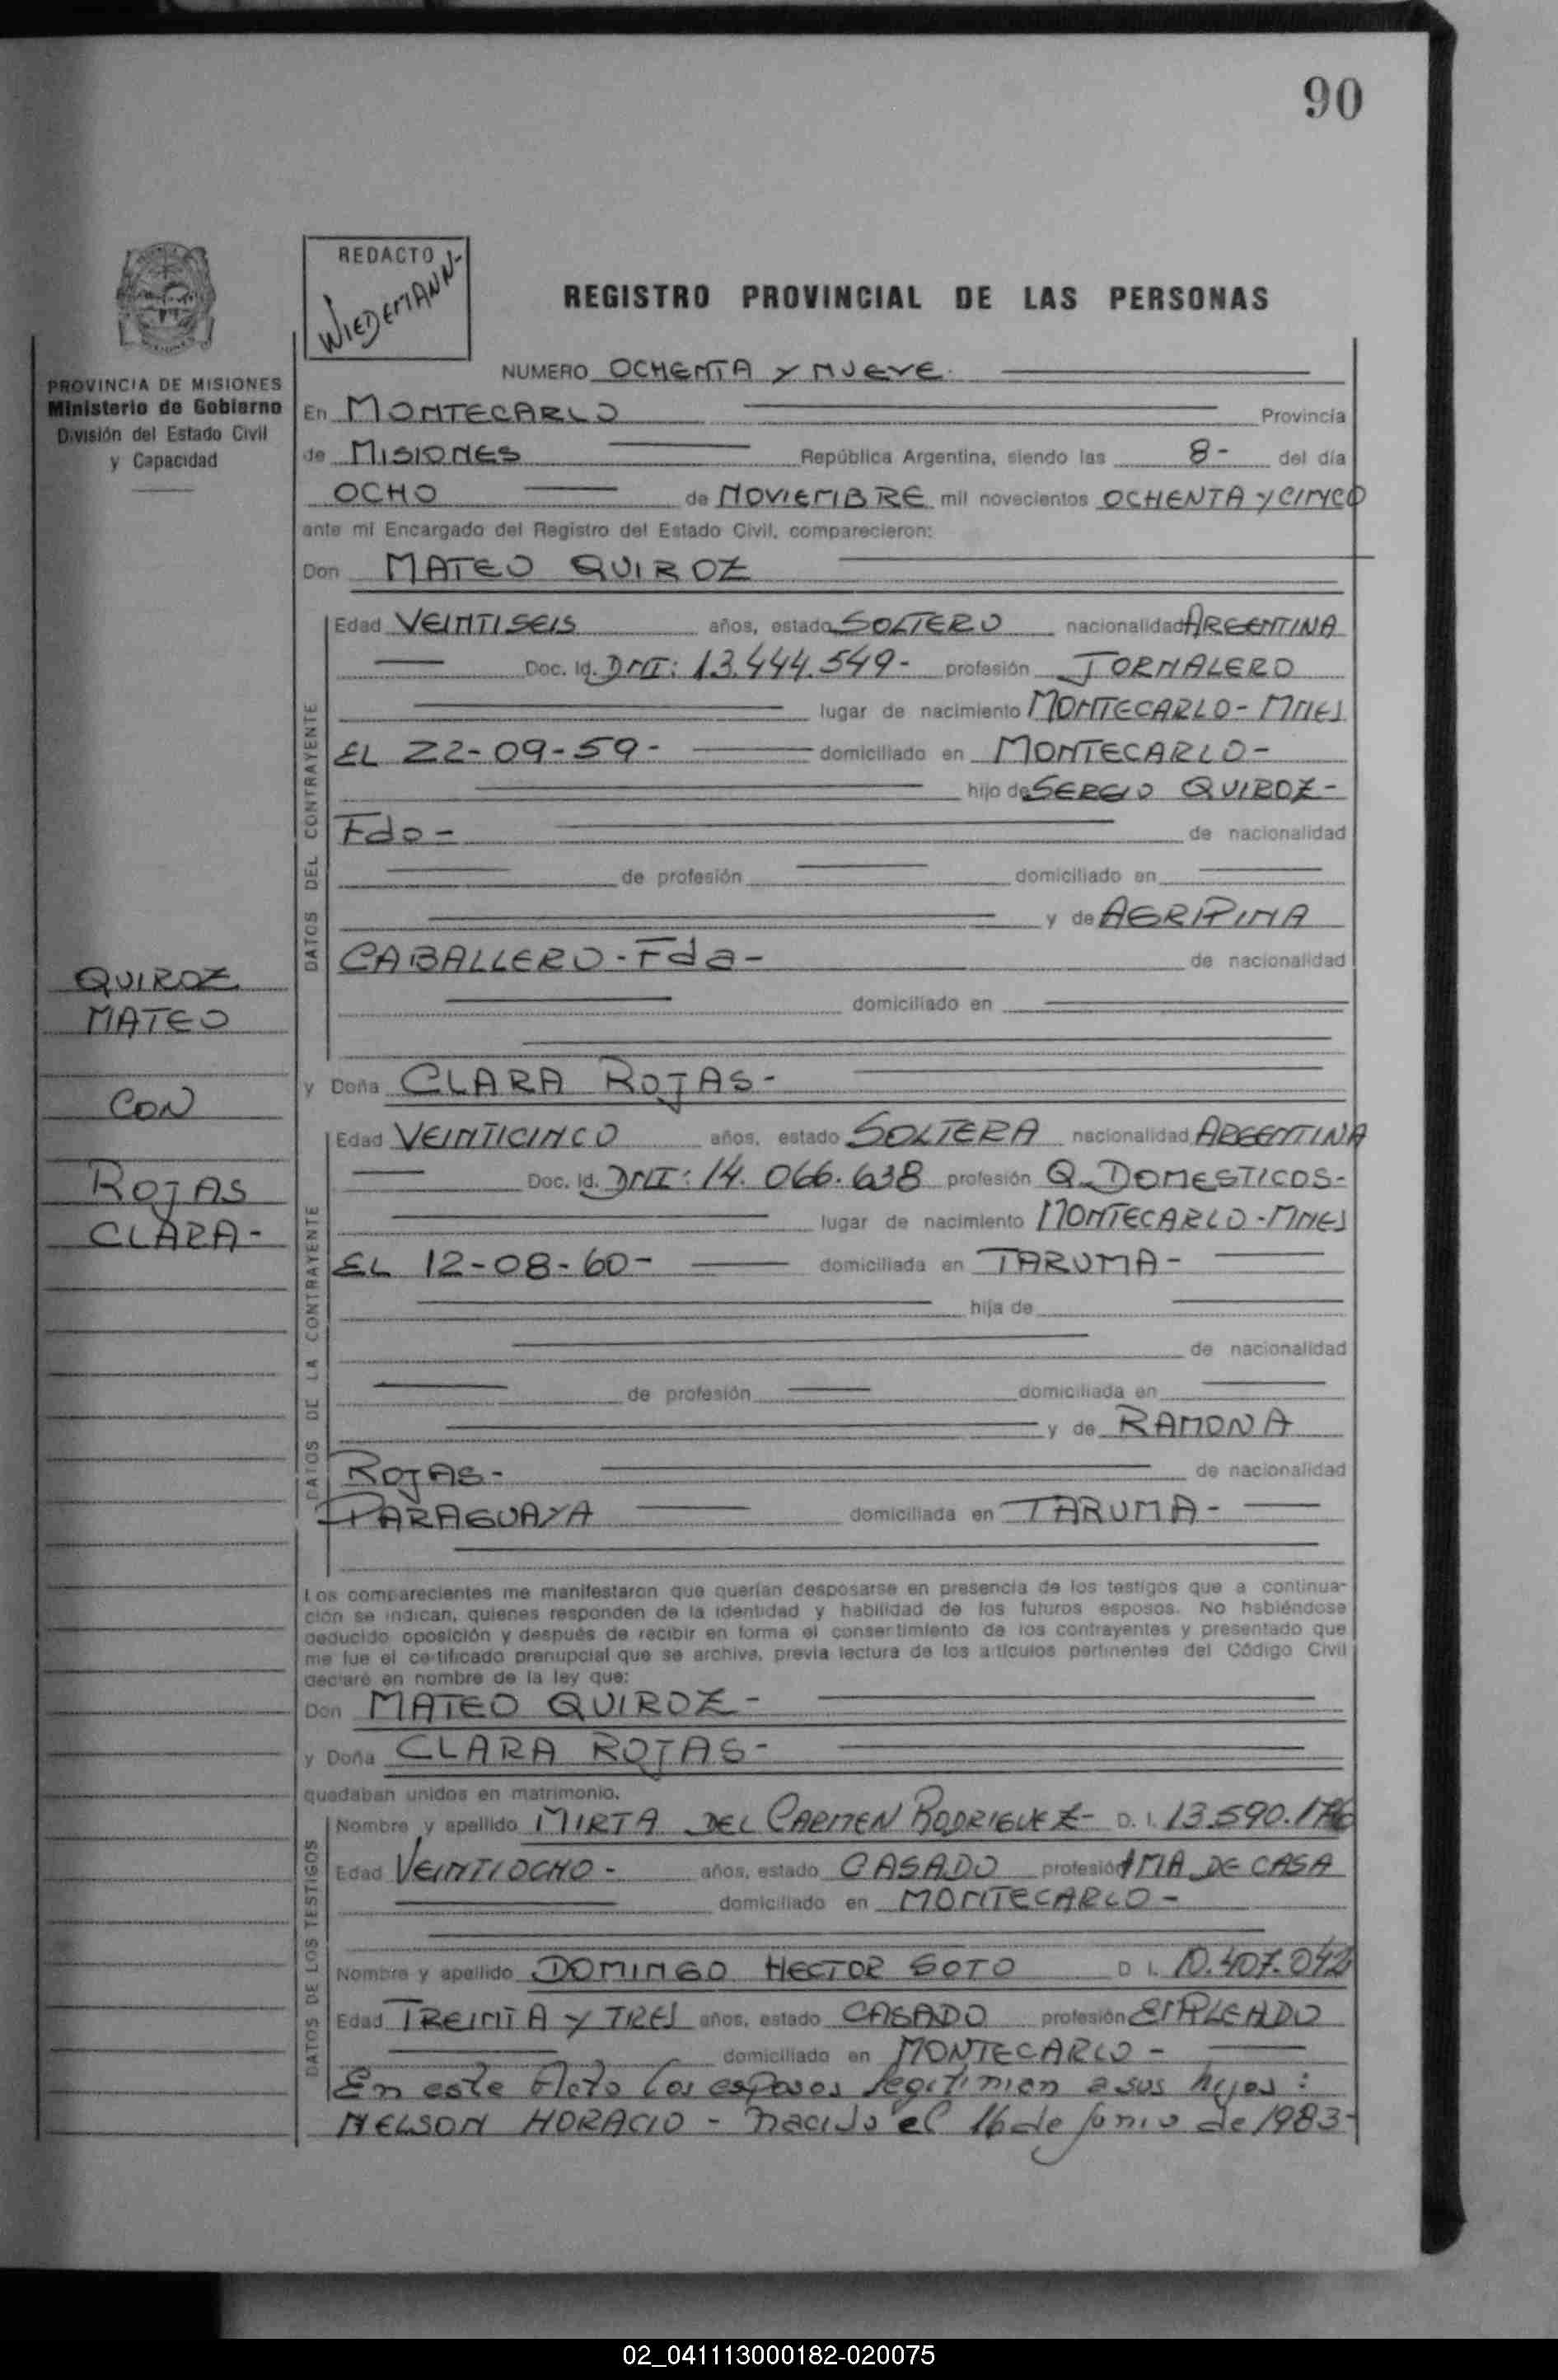 90
REDACTO
WIEDEMANN-
REGISTRO PROVINCIAL DE LAS PERSONAS
PROVINCIA DE MISIONES
Ministerio de Gobierno
División del Estado Civil
y Capacidad
NUMERO OCHENTA Y NUEVE.
En MONTECARLO Provincia
de MISIONES República Argentina, siendo las 8- del día
OCHO de NOVIEMBRE mil novecientos OCHENTA Y CINCO
ante mi Encargado del Registro del Estado Civil, comparecieron:
Don MATEO QUIROZ
DATOS DEL CONTRAYENTE
Edad VEINTISEIS años, estado SOLTERO nacionalidad ARGENTINA
Doc. Id. DNI: 13.444.549- profesión JORNALERO
lugar de nacimiento MONTECARLO- MNES
EL 22-09-59- domiciliado en MONTECARLO-
hijo de SERGIO QUIROZ-
Fdo- de nacionalidad
de profesión domiciliado en
y de AGRIPINA
CABALLERO-Fda- de nacionalidad
domiciliado en
QUIROZ
MATEO
CON
ROJAS
CLARA-
y Doña CLARA ROJAS-
DATOS DE LA CONTRAYENTE
Edad VEINTICINCO años, estado SOLTERA nacionalidad ARGENTINA
Doc. Id. DNI: 14.066.638 profesión Q. DOMESTICOS-
lugar de nacimiento MONTECARLO-MNES
EL 12-08-60- domiciliada en TARUMA-
hija de
de nacionalidad
de profesión domiciliada en
y de RAMONA
ROJAS- de nacionalidad
PARAGUAYA domiciliada en TARUMA-
Los comparecientes me manifestaron que querían desposarse en presencia de los testigos que a continua-
ción se indican, quienes responden de la identidad y habilidad de los futuros esposos. No habiéndose
deducido oposición y después de recibir en forma el consertimiento de los contrayentes y presentado que
me fue el certificado prenupcial que se archiva, previa lectura de los artículos pertinentes del Código Civil
declaré en nombre de la ley que:
Don MATEO QUIROZ-
y Doña CLARA ROJAS-
quedaban unidos en matrimonio.
DATOS DE LOS TESTIGOS
Nombre y apellido MIRTA DEL CARMEN RODRIGUEZ- D. I. 13.590.176
Edad VEINTIOCHO- años, estado CASADO profesión AMA DE CASA
domiciliado en MONTECARLO-
Nombre y apellido DOMINGO HECTOR SOTO D I. 10.407.042
Edad TREINTA Y TRES años, estado CASADO profesión EMPLEADO
domiciliado en MONTECARLO-
En este Acto los esposos legitiman a sus hijos:
NELSON HORACIO - nacido el 16 de junio de 1983-
02_041113000182-020075